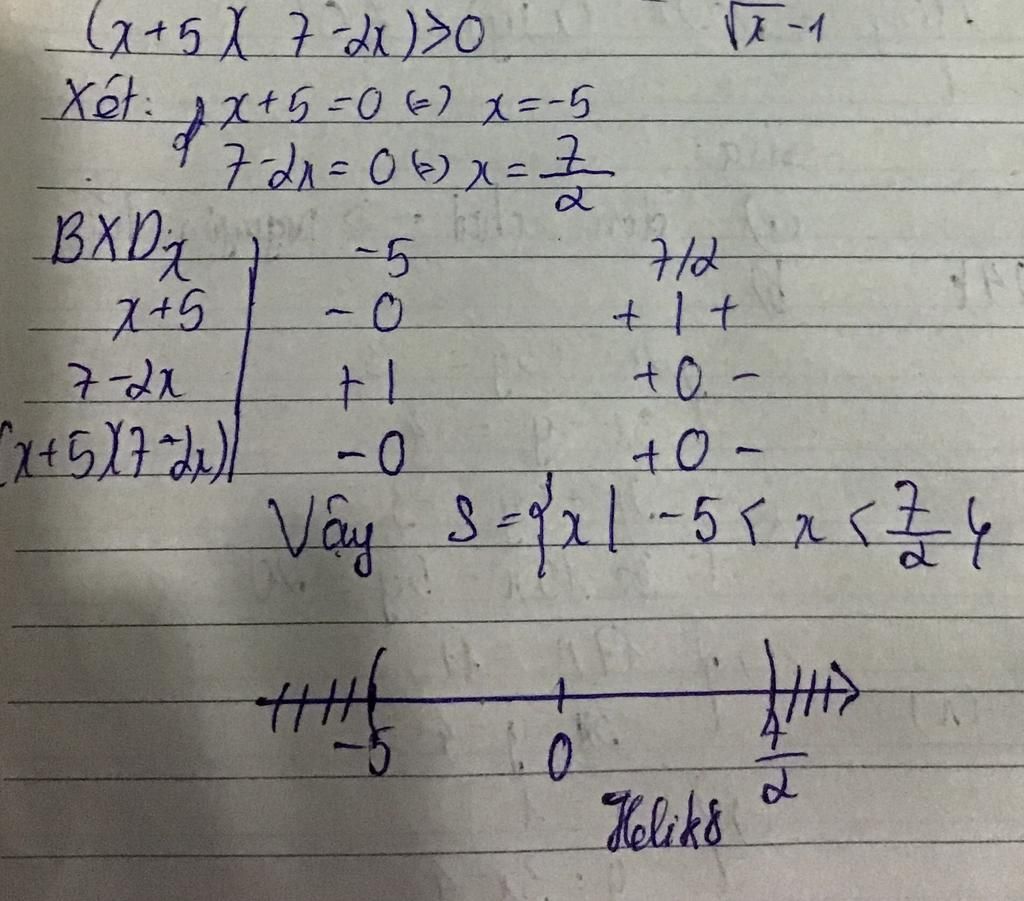 (x+5)(7-2x)>0
√x-1
Xét: { x+5=0 (=) x=-5
7-2x=0 (=) x=7/2
BXD
x | -5 7/2
x+5 | - 0 + | +
7-2x | + | + 0 -
(x+5)(7-2x) | - 0 + 0 -
Vậy S={x| -5<x<7/2}
-5 0 7/2
Helik8